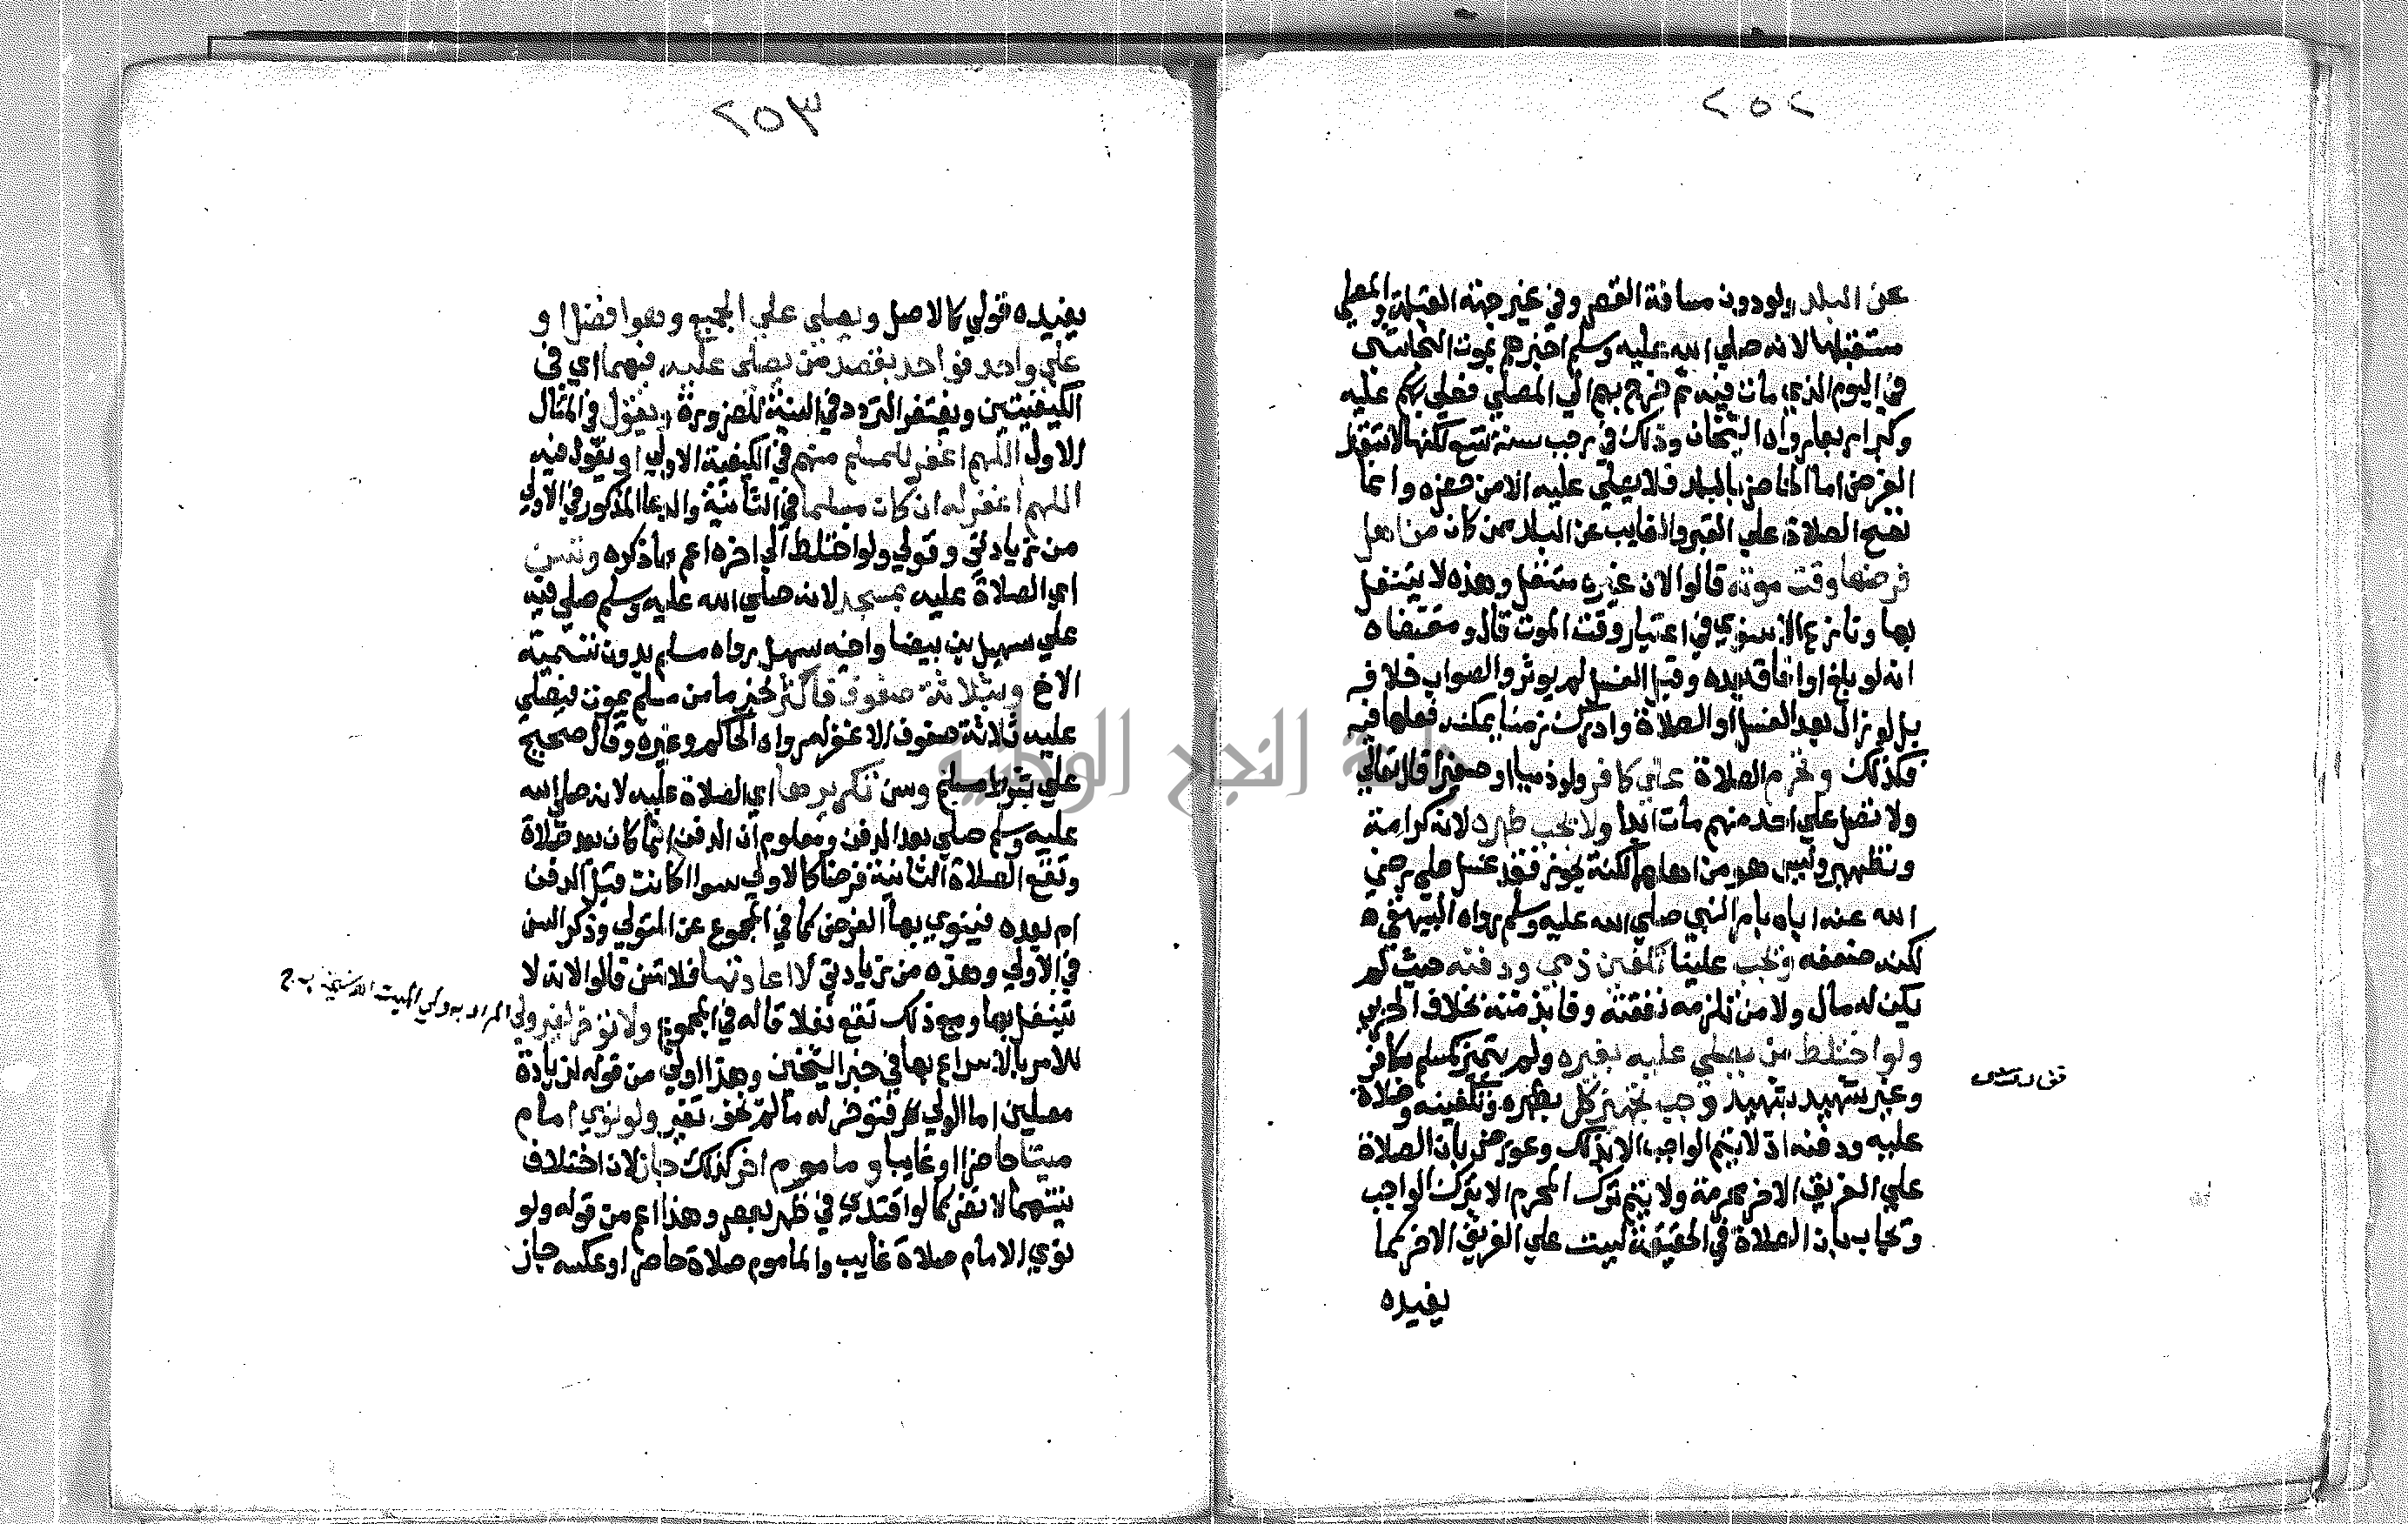 ٢٥٢
عن البلد ولو دون مسافة القصر وفي غير جهة القبلة والمصلي
مستقبلها لانه صلي الله عليه وسلم اخبرهم بموت النجاشي
في اليوم الذي مات فيه ثم خرج بهم الي المصلي فصلي بهم عليه
وكبر اربعا رواه الشيخان وذلك في رجب سنة تسع لكنها لا تسقط
الفرض اما الحاضر بالبلد فلا يصلي عليه الا من حضره وانما
تصح الصلاة علي القبر والغايب عن البلد ممن كان من اهل
فرضها وقت موته قالوا لان غيره متنفل وهذه لا يتنفل
بها ونازع الاسنوي في اعتبار وقت الموت قال ومقتضاه
انه لو بلغ او افاق بعده وقبل الغسل لم يوثر والصواب خلافه
بل لو زال بعد الغسل او الصلاة وادرك زمنا يمكنه فعلها فيه
فكذلك وتحرم الصلاة علي كافر ولو ذميا او صغيرا قال تعالي
ولا تصل علي احد منهم مات ابدا ولا يجب طهره لانه كرامة
وتطهير وليس هو من اهلهما لكنه يجوز فقد غسل علي رضي
الله عنه اباه بامر النبي صلي الله عليه وسلم رواه البيهقي
لكنه ضعفه ويجب علينا تكفين ذمي ودفنه حيث لم
يكن له مال ولا من تلزمه نفقته وفا بذمته بخلاف الحربي
ولو اختلط من يصلي عليه بغيره ولم يتميز كمسلم بكافر
وغير شهيد بشهيد وجب تجهيز كل بطهره وتكفينه وصلاة
عليه ودفنه اذ لا يتم الواجب الا بذلك وعورض بان الصلاة
علي الفريق الاخر محرمة ولا يتم ترك المحرم الا بترك الواجب
ويجاب بان الصلاة في الحقيقة ليست علي الفريق الاخر كما
يفيده
٢٥٣
يفيده قولي كالاصل ويصلي علي الجميع وهو افضل او
علي واحد فواحد بقصد من يصلي عليه فيهما اي في
الكيفيتين ويغتفر التردد في النية للضرورة ويقول في المثال
الاول اللهم اغفر للمسلم منهم في الكيفية الاولي او يقول فيه
اللهم اغفر له ان كان مسلما في الثانية والدعا المذكور في الاولي
من زيادتي وقولي ولو اختلط الي اخره اعم مما ذكره وتسن
اي الصلاة عليه بمسجد لانه صلي الله عليه وسلم صلي فيه
علي سهيل بن بيضا واخيه سهل رواه مسلم بدون تسمية
الاخ وبثلاثة صفوف فاكثر لخبر ما من مسلم يموت فيصلي
عليه ثلاثة صفوف الا غفر له رواه الحاكم وغيره وقال صحيح
علي شرط مسلم وسن تكريرها اي الصلاة عليه لانه صلي الله
عليه وسلم صلي بعد الدفن ومعلوم ان الدفن انما كان بعد صلاة
وتقع الصلاة الثانية فرضا كالاولي سوا كانت قبل الدفن
ام بعده فينوي بها الفرض كما في المجموع عن المتولي وذكر السن
في الاولي وهذه من زيادتي لا اعادتها فلا تسن قالوا لانه لا
يتنفل بها ومع ذلك تقع نفلا قاله في المجموع ولا توخر لغير ولي
المراد به ولي الميت
للامر بالاسراع بها في خبر الشيخين وهذا اولي من قوله لزيادة
مصلين اما الولي فتوخر له ما لم يخف تغير ولو نوي امام
ميتا حاضرا او غايبا وماموم اخر كذلك جاز لان اختلاف
نيتهما لا يضر كما لو اقتدي في ظهر بعصر وهذا اعم من قوله ولو
نوي الامام صلاة غايب والماموم صلاة حاضر او عكسه جاز
جامعة النجاح الوطنية